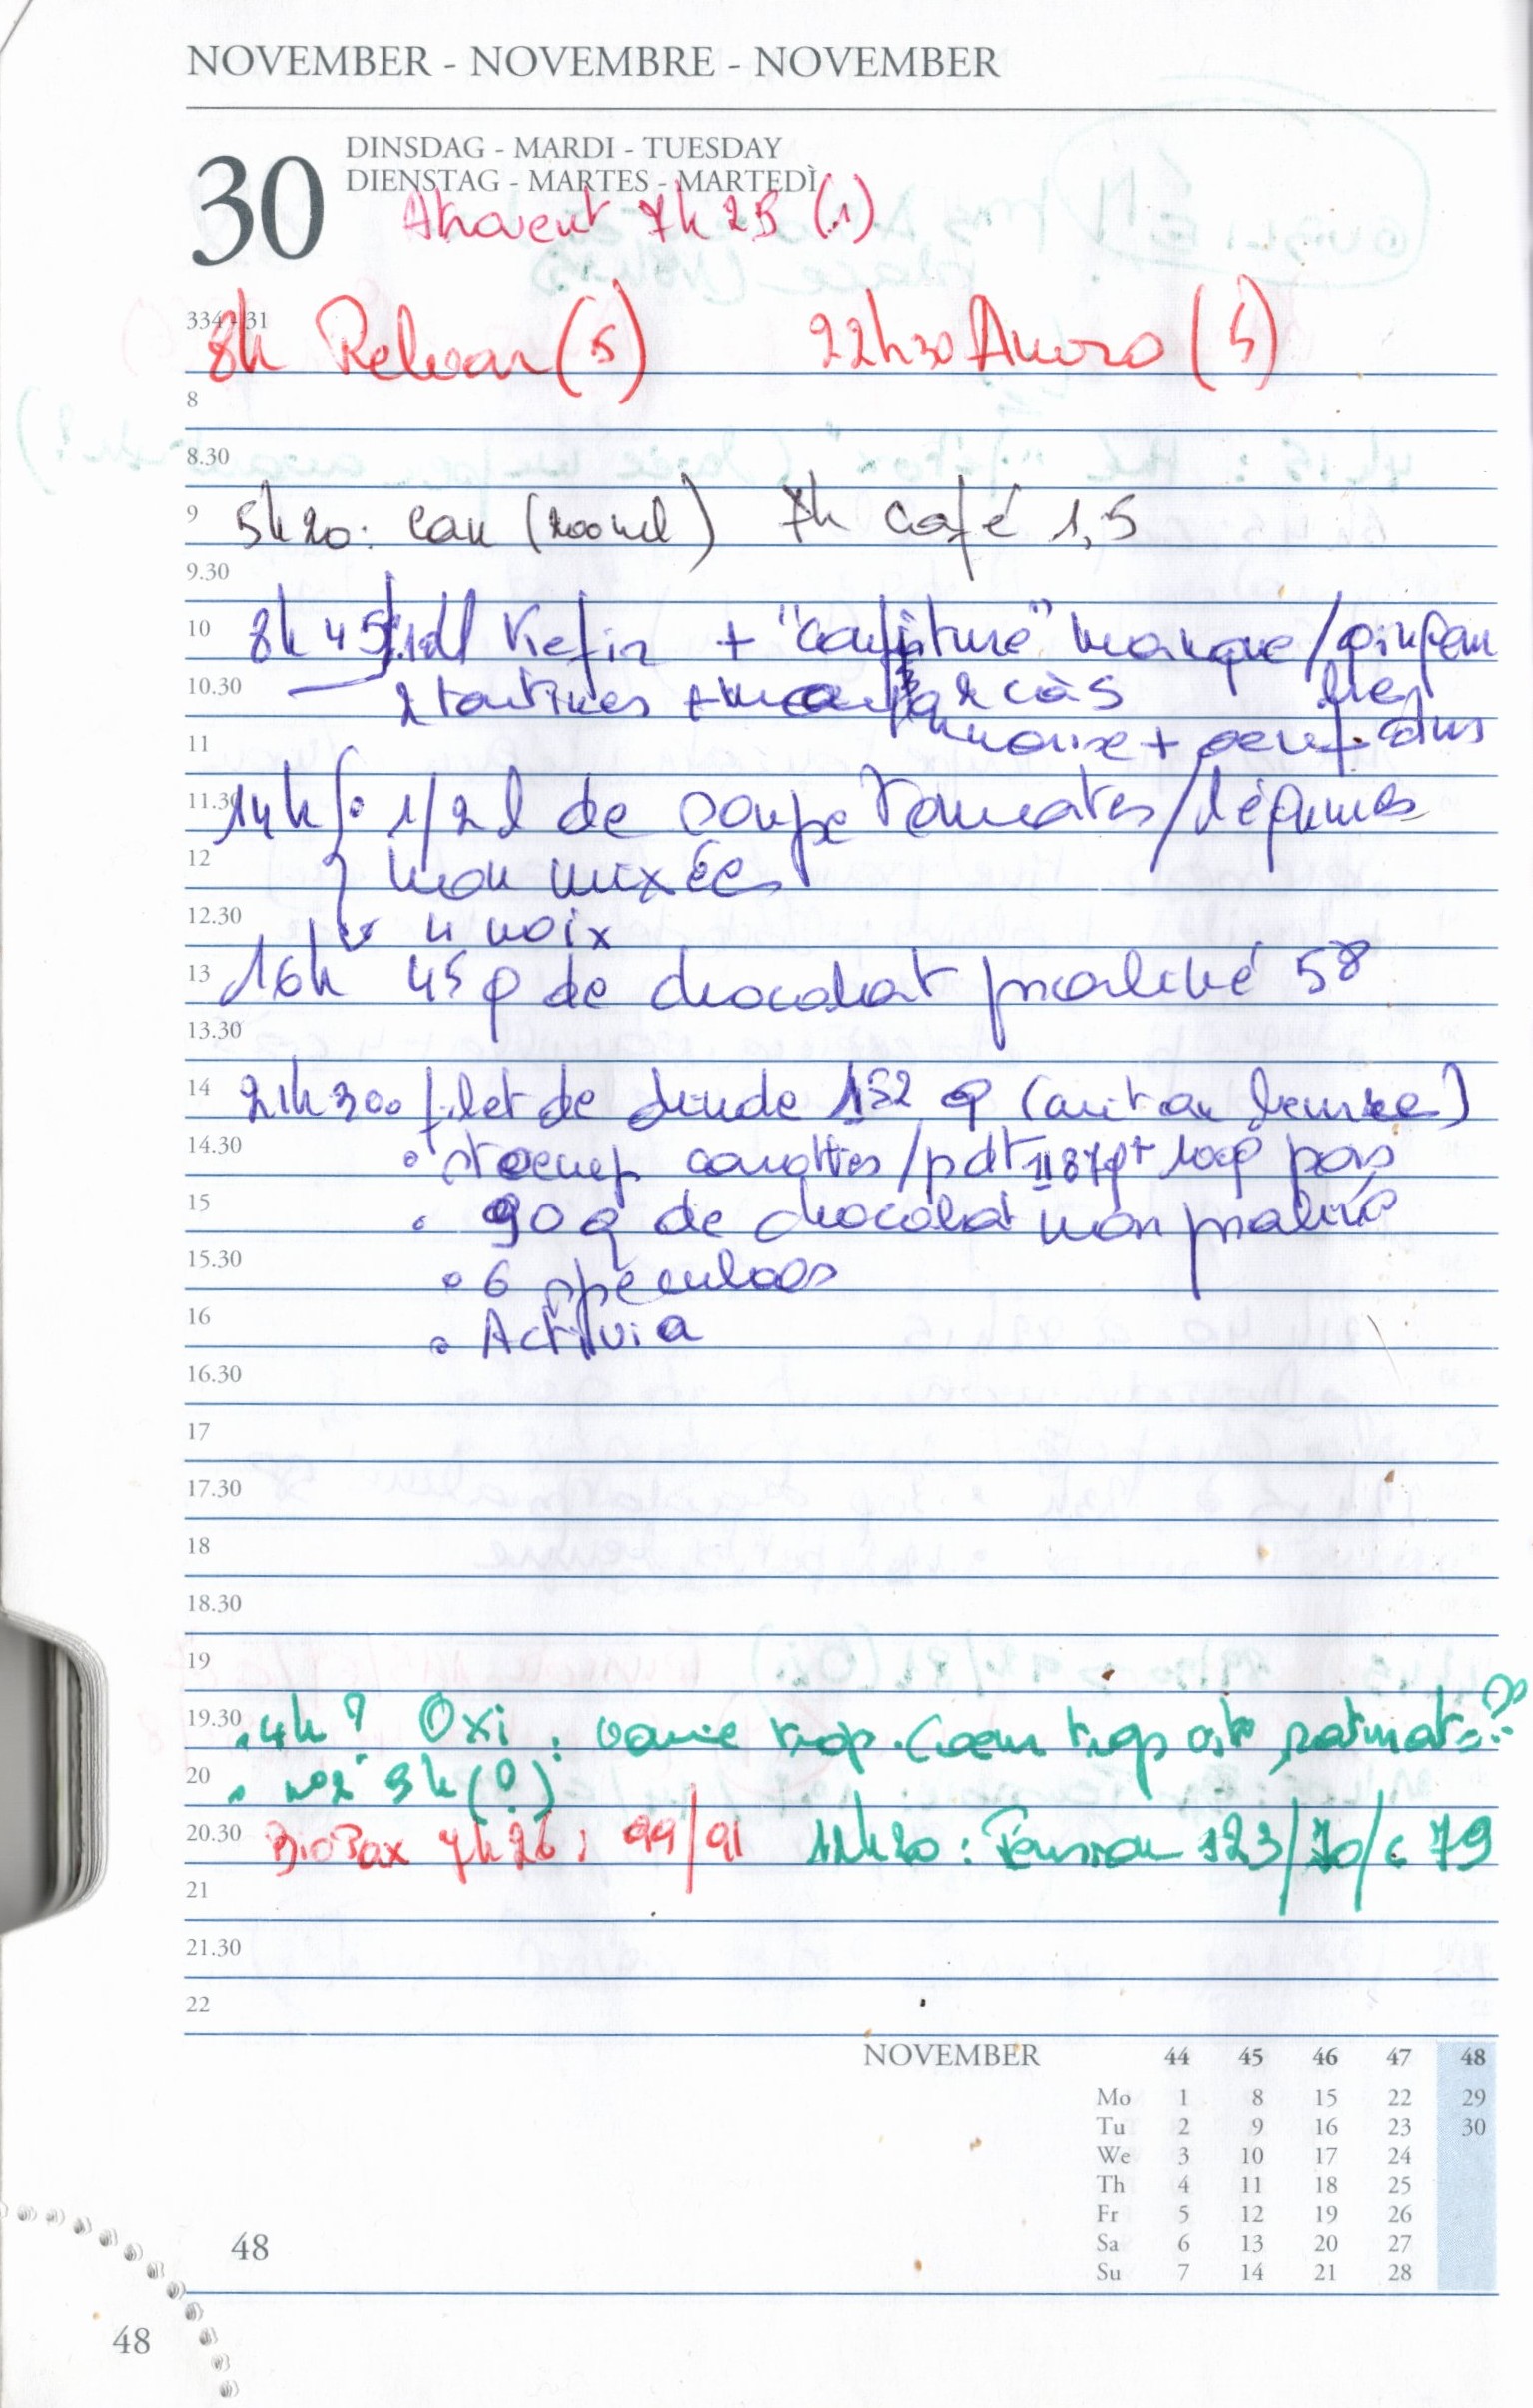 NOVEMBER - NOVEMBRE - NOVEMBER
30
DINSDAG - MARDI - TUESDAY
DIENSTAG - MARTES - MARTEDÌ
Atrovent 7h25 (1)
334 - 31
8h Relvar (5) 22h30 Anoro (5)
8
8.30
9 5h20: eau (200ml) 7h Café 1,5
9.30
10 8h45 Kefir + "confiture" mangue/gingem
10.30 2 tartines + 2 càs bre
11 + oeuf durs
11.30 14h : 1/2 l de soupe Tomates/légumes
12 non mixées
12.30 4 noix
13 16h 45 g de chocolat praliné 58
13.30
14 21h30 filet de dinde 152 g (cuit au beurre)
14.30 • stoemp carottes/pdt 187g + 100g pois
15 • 90 g de chocolat non praliné
15.30 • 6 spéculoos
16 • Activia
16.30
17
17.30
18
18.30
19
19.30 . 4h? Oxi : varie trop. Coeur trop vite
20 . 9h (0)
20.30 BioPax 7h26 : 99/91 12h20 : Tension 123/70/c 79
21
21.30
22
NOVEMBER 44 45 46 47 48
Mo 1 8 15 22 29
Tu 2 9 16 23 30
We 3 10 17 24
Th 4 11 18 25
Fr 5 12 19 26
Sa 6 13 20 27
Su 7 14 21 28
48
48